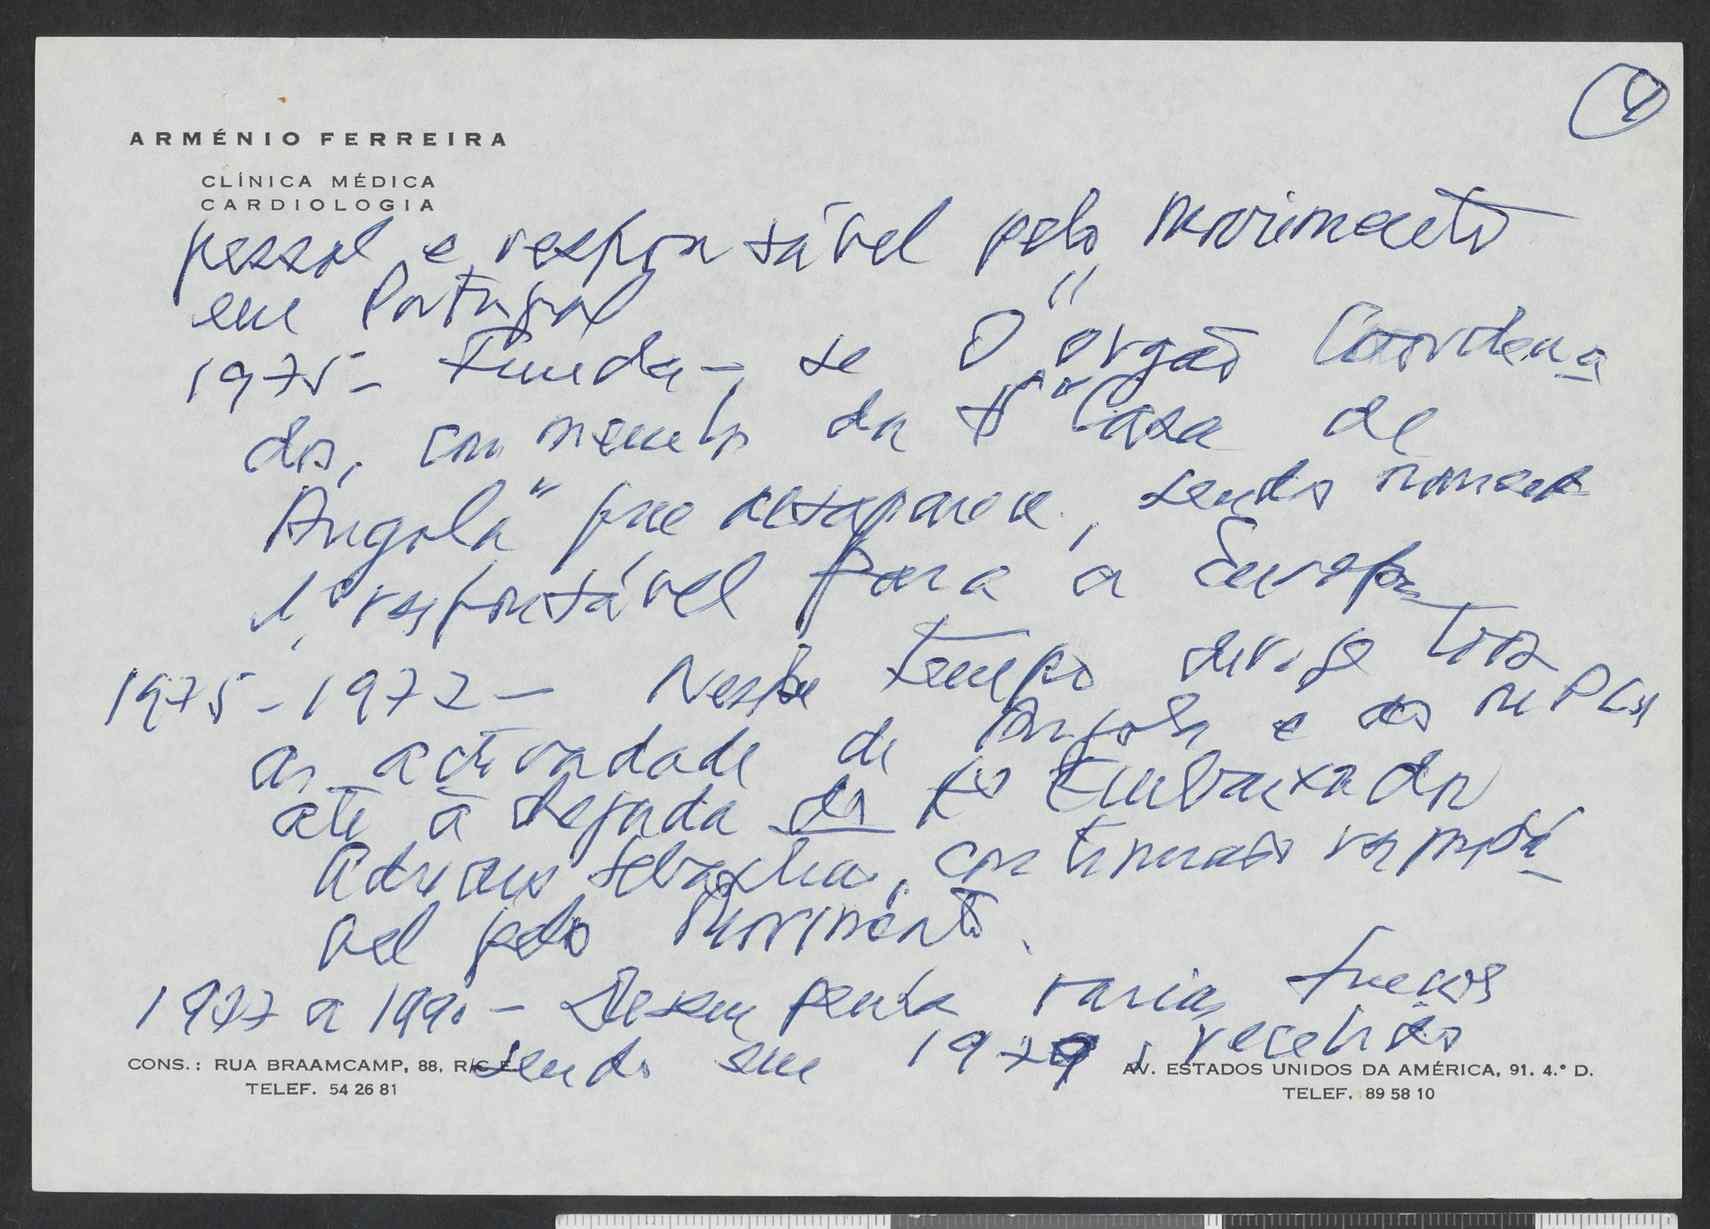 4
ARMÉNIO FERREIRA
CLÍNICA MÉDICA
CARDIOLOGIA
pessoal e responsável pelo movimento
em Portugal
1975 - Funda-se O "orgão Coordena
dor, com membros da "Casa de
Angola" que desaparece, sendo
1º responsável para a Europa
1975-1977 - Neste tempo dirige todas
as actividade de Angola e do MPLA
até à chegada do 1º Embaixador
Adriano Sebastião, continuando responsá-
vel pelo Movimento.
1977 a 1990 - Desempenha varias funções
sendo em 1979, recebido
CONS.: RUA BRAAMCAMP, 88, R/C E.
TELEF. 54 26 81
AV. ESTADOS UNIDOS DA AMÉRICA, 91. 4.º D.
TELEF. 89 58 10